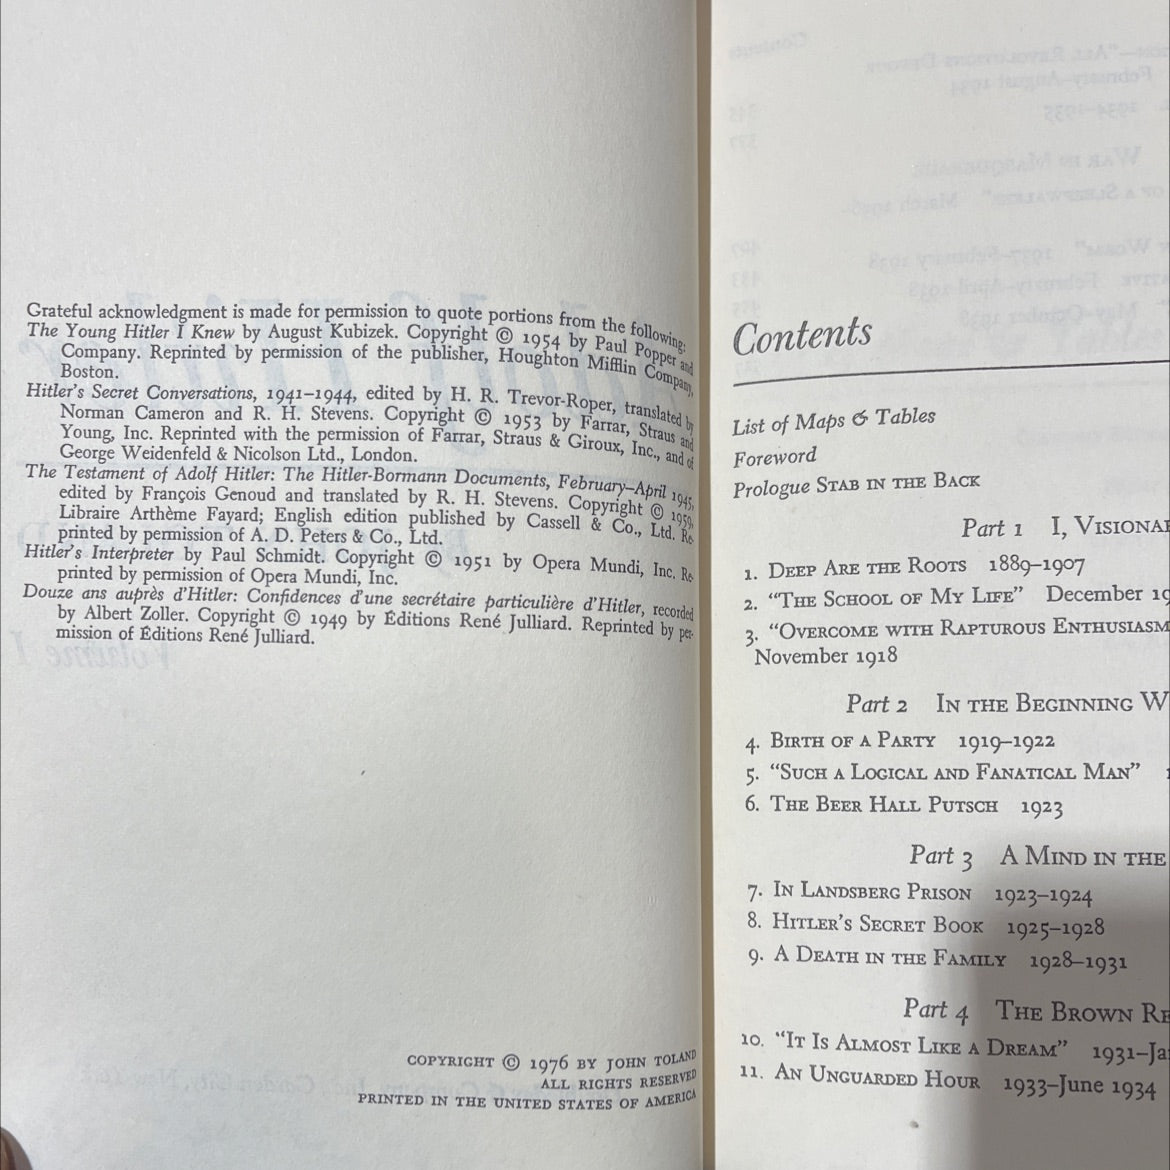 Grateful acknowledgment is made for permission to quote portions from the following:
The Young Hitler I Knew by August Kubizek. Copyright © 1954 by Paul Popper and
Company. Reprinted by permission of the publisher, Houghton Mifflin Company,
Boston.
Hitler's Secret Conversations, 1941–1944, edited by H. R. Trevor-Roper, translated by
Norman Cameron and R. H. Stevens. Copyright © 1953 by Farrar, Straus and
Young, Inc. Reprinted with the permission of Farrar, Straus & Giroux, Inc., and of
George Weidenfeld & Nicolson Ltd., London.
The Testament of Adolf Hitler: The Hitler-Bormann Documents, February–April 1945,
edited by François Genoud and translated by R. H. Stevens. Copyright © 1959,
Libraire Arthème Fayard; English edition published by Cassell & Co., Ltd. Re-
printed by permission of A. D. Peters & Co., Ltd.
Hitler's Interpreter by Paul Schmidt. Copyright © 1951 by Opera Mundi, Inc. Re-
printed by permission of Opera Mundi, Inc.
Douze ans auprès d'Hitler: Confidences d'une secrétaire particulière d'Hitler, recorded
by Albert Zoller. Copyright © 1949 by Éditions René Julliard. Reprinted by per-
mission of Éditions René Julliard.
COPYRIGHT © 1976 BY JOHN TOLAND
ALL RIGHTS RESERVED
PRINTED IN THE UNITED STATES OF AMERICA
Contents
List of Maps & Tables
Foreword
Prologue STAB IN THE BACK
Part 1 I, VISIONAR
1. DEEP ARE THE ROOTS 1889–1907
2. "THE SCHOOL OF MY LIFE" December 19
3. "OVERCOME WITH RAPTUROUS ENTHUSIASM
November 1918
Part 2 IN THE BEGINNING W
4. BIRTH OF A PARTY 1919–1922
5. "SUCH A LOGICAL AND FANATICAL MAN" 1
6. THE BEER HALL PUTSCH 1923
Part 3 A MIND IN THE
7. IN LANDSBERG PRISON 1923–1924
8. HITLER'S SECRET BOOK 1925–1928
9. A DEATH IN THE FAMILY 1928–1931
Part 4 THE BROWN RE
10. "IT IS ALMOST LIKE A DREAM" 1931–Ja
11. AN UNGUARDED HOUR 1933–June 1934